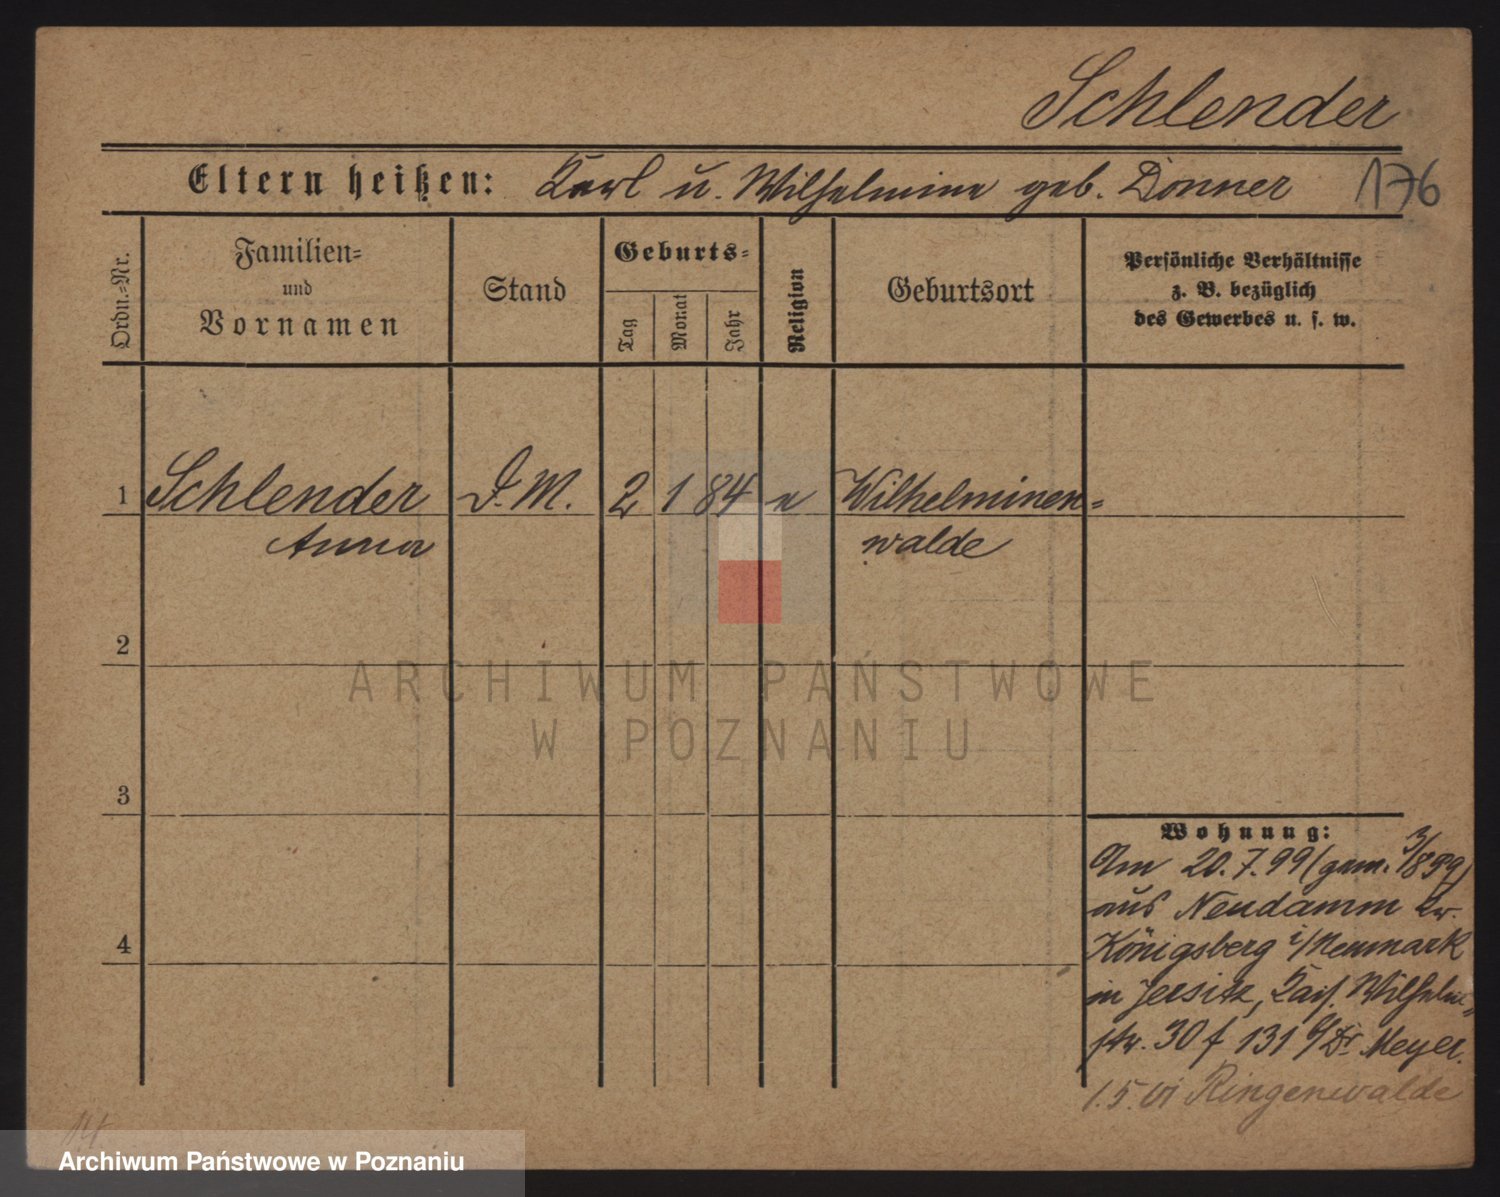 Schlender
Eltern heißen: Karl u. Wilhelmine geb. Donner 176
Ordn.-Nr.
Familien-
und
Vornamen
Stand
Geburts-
Tag
Monat
Jahr
Religion
Geburtsort
Persönliche Verhältnisse
z. B. bezüglich
des Gewerbes u. s. w.
1 Schlender D. M. 2 1 84 Wilhelminen-
Anna walde
2
ARCHIWUM PAŃSTWOWE
W POZNANIU
3
Wohnung:
Am 20.7.99 (gem. 3/8 99)
aus Neudamm Kr.
Königsberg i/Neumark
in Jersitz, Kais. Wilhelm-
4
str. 30 f 131 b/Dr Meyer.
1.5.01 Ringenwalde
Archiwum Państwowe w Poznaniu